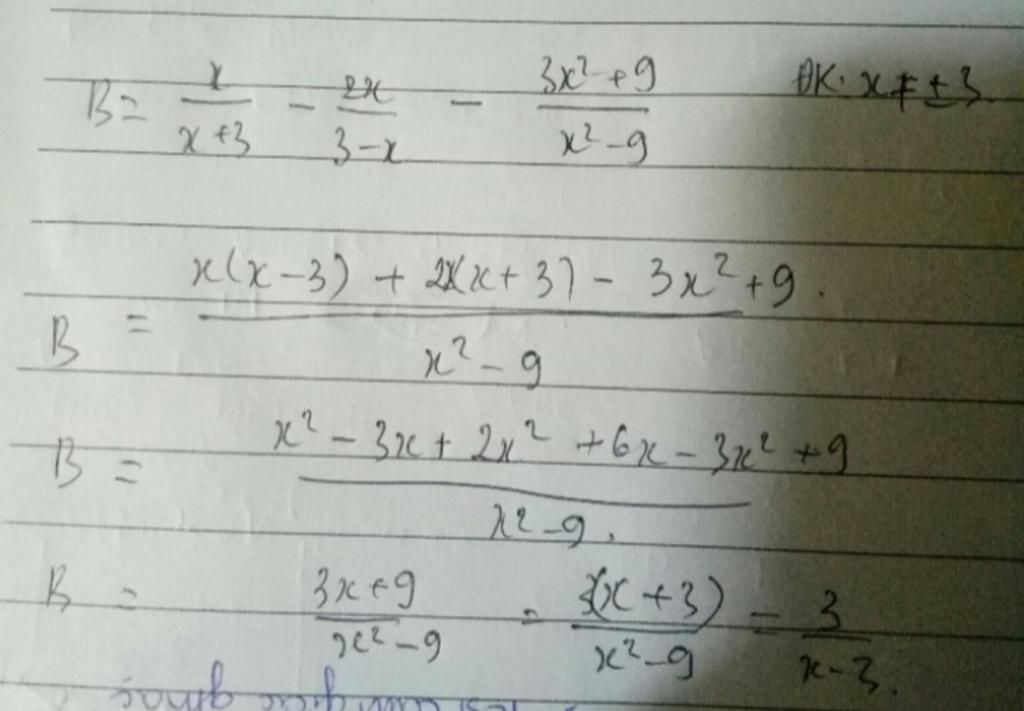 B = x/(x+3) - 2x/(3-x) - (3x²+9)/(x²-9) ĐK: x ≠ ±3
B = (x(x-3) + 2x(x+3) - 3x²+9)/(x²-9)
B = (x² - 3x + 2x² + 6x - 3x² + 9)/(x²-9)
B = (3x+9)/(x²-9) = 3(x+3)/(x²-9) = 3/(x-3).